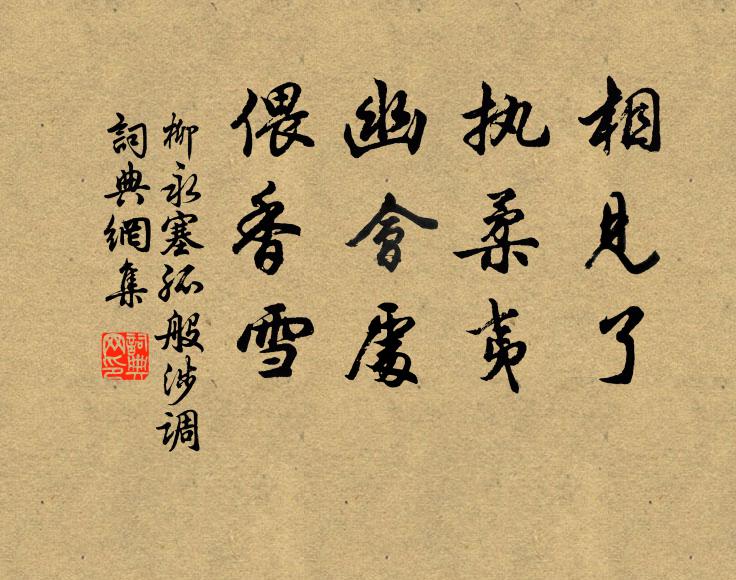 相見了
执柔荑
幽會處
偎香雪
柳永塞孤般涉调
詞典網集
詞典網印